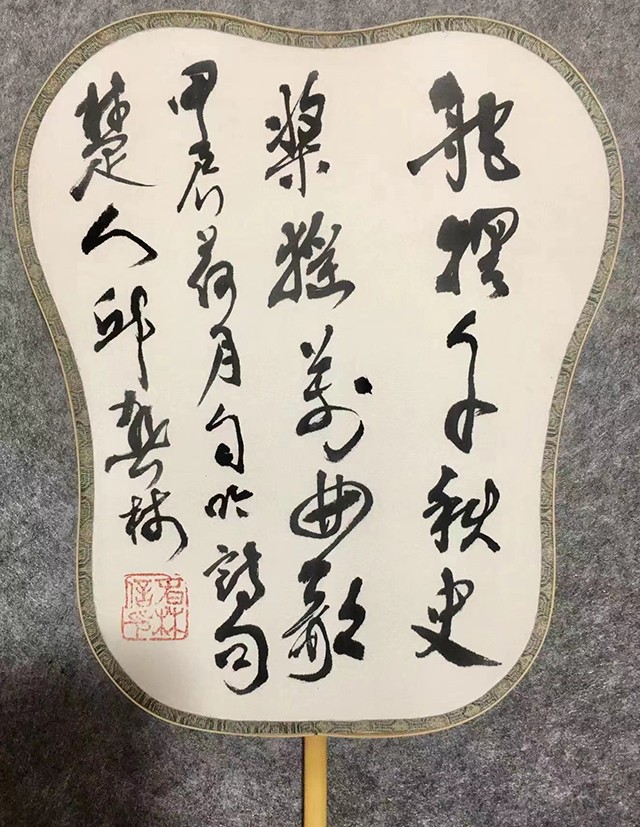 舵擺千秋史
槳摇萬曲歌
甲辰荷月自吟詩句
楚人邱林